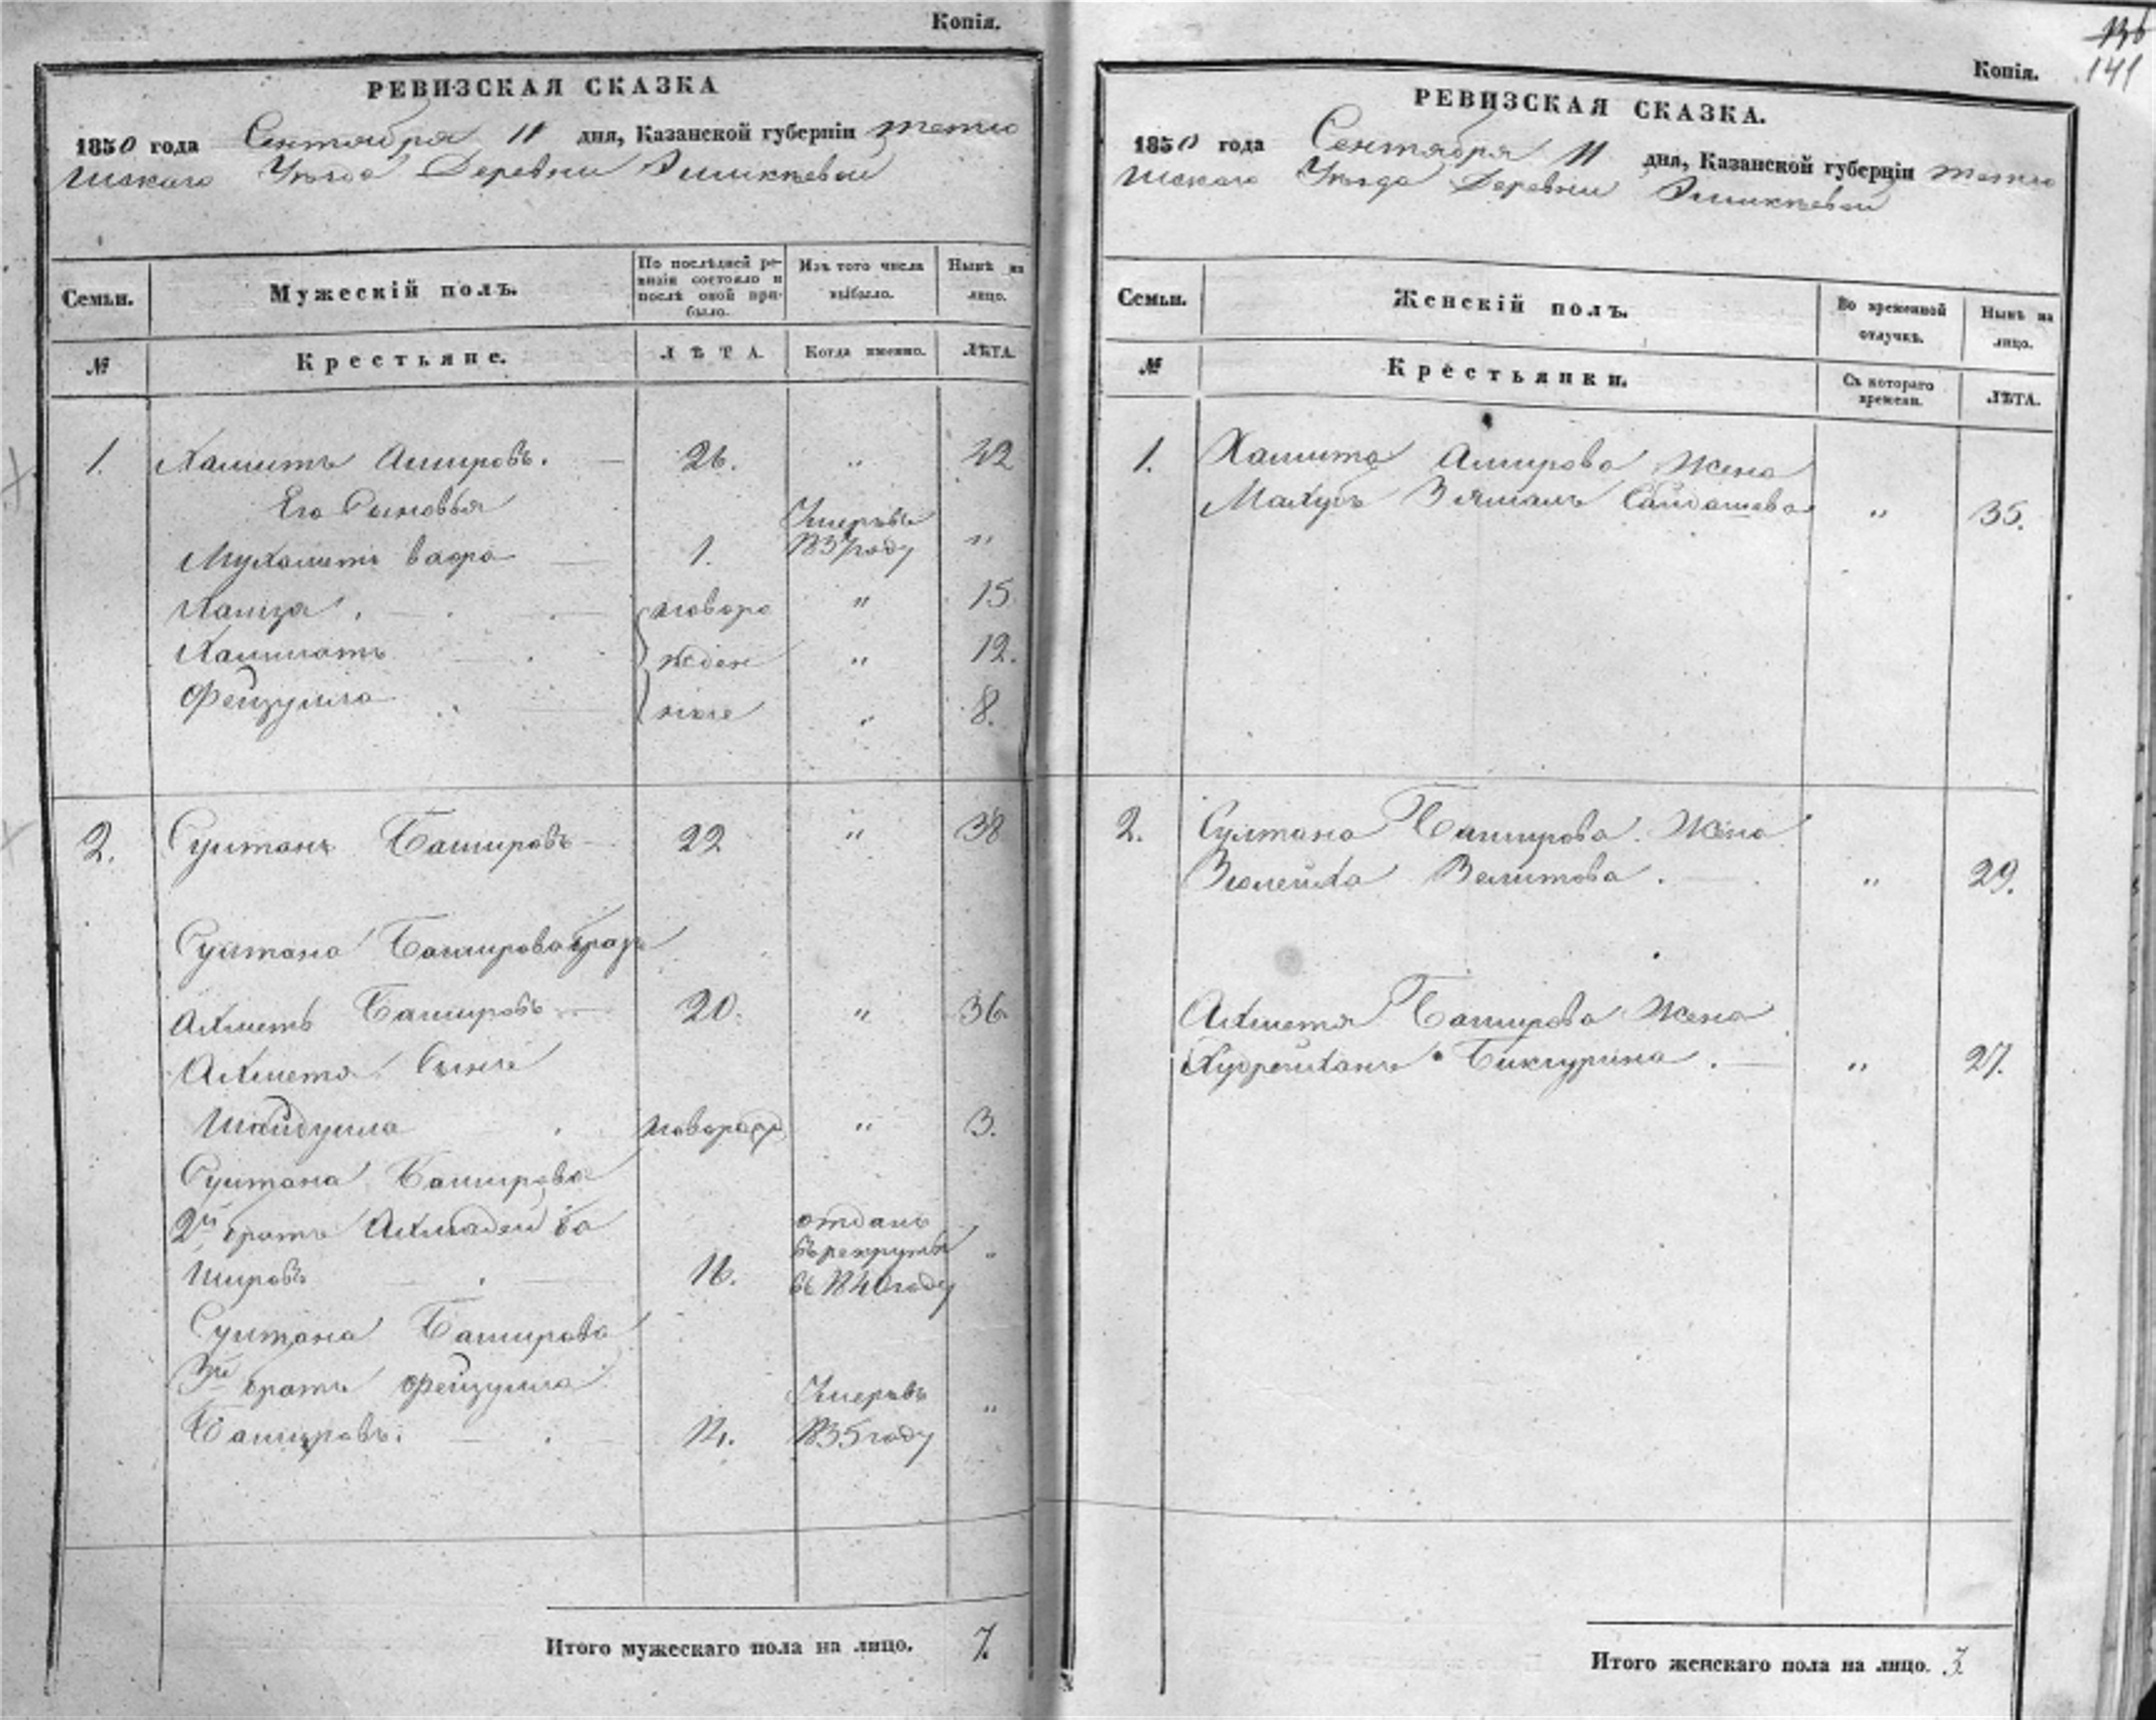 Копія.
РЕВИЗСКАЯ СКАЗКА
1850 года Сентября 11 дня, Казанской губерніи тетю
шскаго Уѣзда Деревни
Семьи.
Мужескій полъ.
По послѣдней ре-
визіи состояло и
послѣ оной при-
было.
Изъ того числа
выбыло.
Нынѣ на
лицо.
№
Крестьяне.
ЛѢТА.
Когда именно.
ЛѢТА.
1. Хамитъ Амировъ. 26. " 42
Его Сыновья
Умеръ въ
Мухаметъ 1. 1837 году "
Хамза. новоро " 15
жден " 12.
Фейзулла ные " 8.
2. Султанъ Башировъ 22 " 38
Султана Баширова братъ
Ахметъ Башировъ 20. " 36.
Ахметя Сынъ
Шайдулла новорож " 3.
Султана Баширова
2й братъ Ахмадей Ба отданъ
въ рекруты "
шировъ 16. въ 1840 году
Султана Баширова
3й братъ Фейзулла Умеръ въ
Башировъ. 14. 1835 году "
Итого мужескаго пола на лицо. 7.
136
141
Копія.
РЕВИЗСКАЯ СКАЗКА.
1850 года Сентября 11 дня, Казанской губерніи тетю
шскаго Уѣзда Деревни
Семьи.
Женскій полъ.
Во временной
отлучкѣ.
Нынѣ на
лицо.
№
Крестьянки.
Съ котораго
времени.
ЛѢТА.
1. Хамита Амирова Жена
Махубъ Зямалъ Сайдашева " 35.
2. Султана Баширова Жена
Зюлейха Велитова. " 29.
Ахметя Баширова Жена
Бикчурина. " 27.
Итого женскаго пола на лицо. 3.